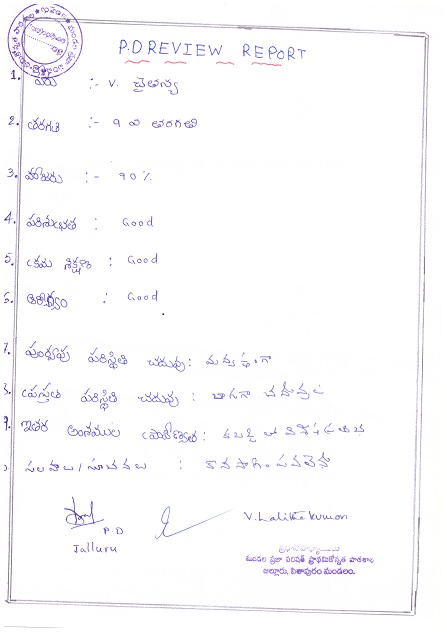 P.D REVIEW REPORT
1. పేరు :- V. చైతన్య
2. తరగతి :- 9 వ తరగతి
3. హాజరు :- 90 %
4. పరిశుభ్రత : Good
5. క్రమ శిక్షణ : Good
6. ఆరోగ్యం : Good
7. పూర్వపు పరిస్థితి చదువు: మధ్యస్థంగా
8. ప్రస్తుత పరిస్థితి చదువు : బాగా
9. ఇతర అంశముల ప్రావీణ్యత : కబడ్డీ లో
సలహాలు/సూచనలు : కొనసాగించవలెను
V. Lalitha kumari
P.D
Jalluru
ప్రధానోపాధ్యాయుడు
మండల ప్రజా పరిషత్ ప్రాథమికోన్నత పాఠశాల
జల్లూరు, పిఠాపురం మండలం.